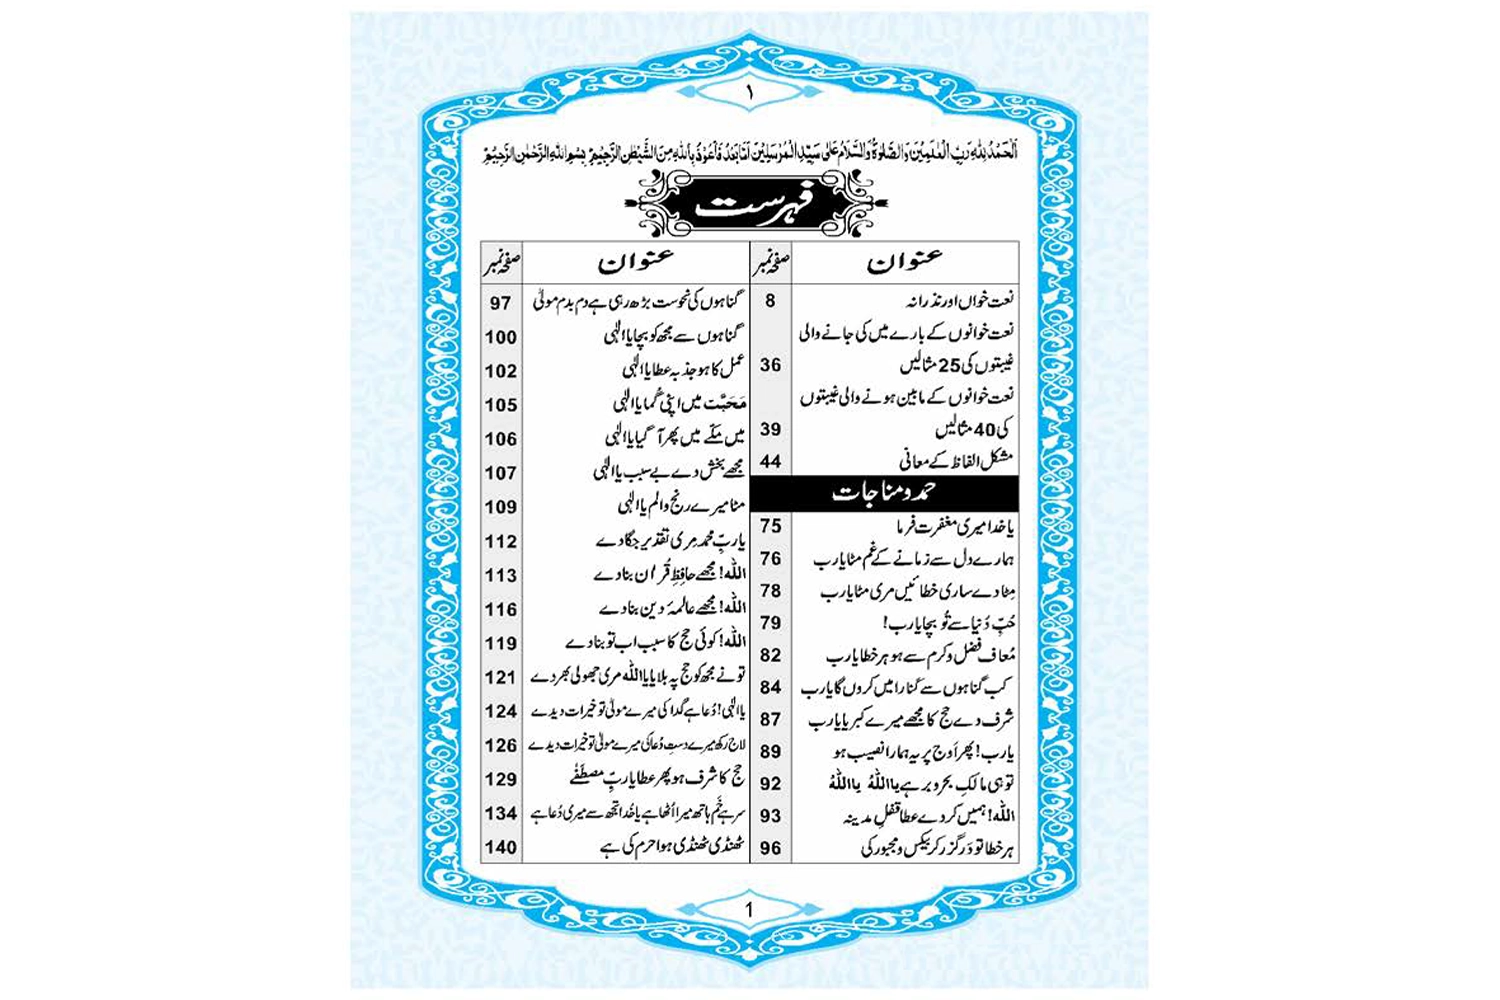 ۱
اَلْحَمْدُ لِلّٰهِ رَبِّ الْعٰلَمِیْنَ وَالصَّلٰوةُ وَالسَّلَامُ عَلٰی سَیِّدِ الْمُرْسَلِیْنَ اَمَّا بَعْدُ فَاَعُوْذُ بِاللّٰهِ مِنَ الشَّیْطٰنِ الرَّجِیْمِ بِسْمِ اللّٰهِ الرَّحْمٰنِ الرَّحِیْمِ
فہرست
عنوان صفحہ نمبر
نعت خواں اور نذرانہ 8
نعت خوانوں کے بارے میں کی جانے والی
غیبتوں کی 25 مثالیں 36
نعت خوانوں کے مابین ہونے والی غیبتوں
کی 40 مثالیں 39
مشکل الفاظ کے معانی 44
حمد و مناجات
یاخدا میری مغفرت فرما 75
ہمارے دل سے زمانے کے غم مٹا یارب 76
مِٹا دے ساری خطائیں مری مٹا یارب 78
حُبِّ دُنیا سے تُو بچا یارب! 79
مُعاف فضل و کرم سے ہو ہر خطا یارب 82
کب گناہوں سے کَنارا میں کروں گا یارب 84
شرف دے حج کا مجھے میرے کبریا یارب 87
یارب! پھر اَوج پر یہ ہمارا نصیب ہو 89
تو ہی مالکِ بحر و بر ہے یااللّٰہُ یااللّٰہُ 92
اللّٰہ! ہمیں کر دے عطا قفلِ مدینہ 93
ہر خطا تو دَرگزر کر بیکس و مجبور کی 96
عنوان صفحہ نمبر
گناہوں کی نحوست بڑھ رہی ہے دم بدم مولیٰ 97
گناہوں سے مجھ کو بچا یاالٰہی 100
عمل کا ہو جذبہ عطا یاالٰہی 102
مَحَبَّت میں اپنی گُما یاالٰہی 105
میں مکّے میں پھر آ گیا یاالٰہی 106
مجھے بخش دے بے سبب یاالٰہی 107
مٹا میرے رنج و الم یاالٰہی 109
یاربِّ محمد مِری تقدیر جگا دے 112
اللّٰہ! مجھے حافِظِ قُراٰن بنا دے 113
اللّٰہ! مجھے عالمۂ دین بنا دے 116
اللّٰہ! کوئی حج کا سبب اب تو بنا دے 119
تونے مجھ کو حج پہ بلایا یااللّٰہ مری جھولی بھر دے 121
یاالٰہی! دُعا ہے گدا کی میرے مولیٰ تو خیرات دیدے 124
لاج رکھ میرے دستِ دُعا کی میرے مولیٰ تو خیرات دیدے 126
حج کا شرف ہو پھر عطا یاربِّ مصطَفٰے 129
سر ہے خَم ہاتھ میرا اُٹھا ہے یاخُدا تجھ سے میری دُعا ہے 134
ٹھنڈی ٹھنڈی ہوا حرم کی ہے 140
1